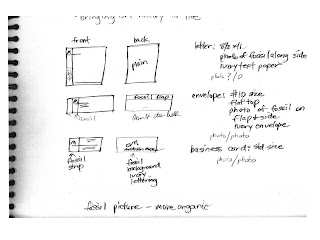 bringing art history to life
front back
plain
letter: 8½ x 11
photo of fossil along side
ivory text paper
photo ?/0
fossil
fossil flap
envelope: #10 size
flat top
photo of fossil on
flap + side
ivory envelope
photo/photo
business card: std size
photo/photo
fossil
strip
fossil
background
ivory
lettering
fossil picture – more organic